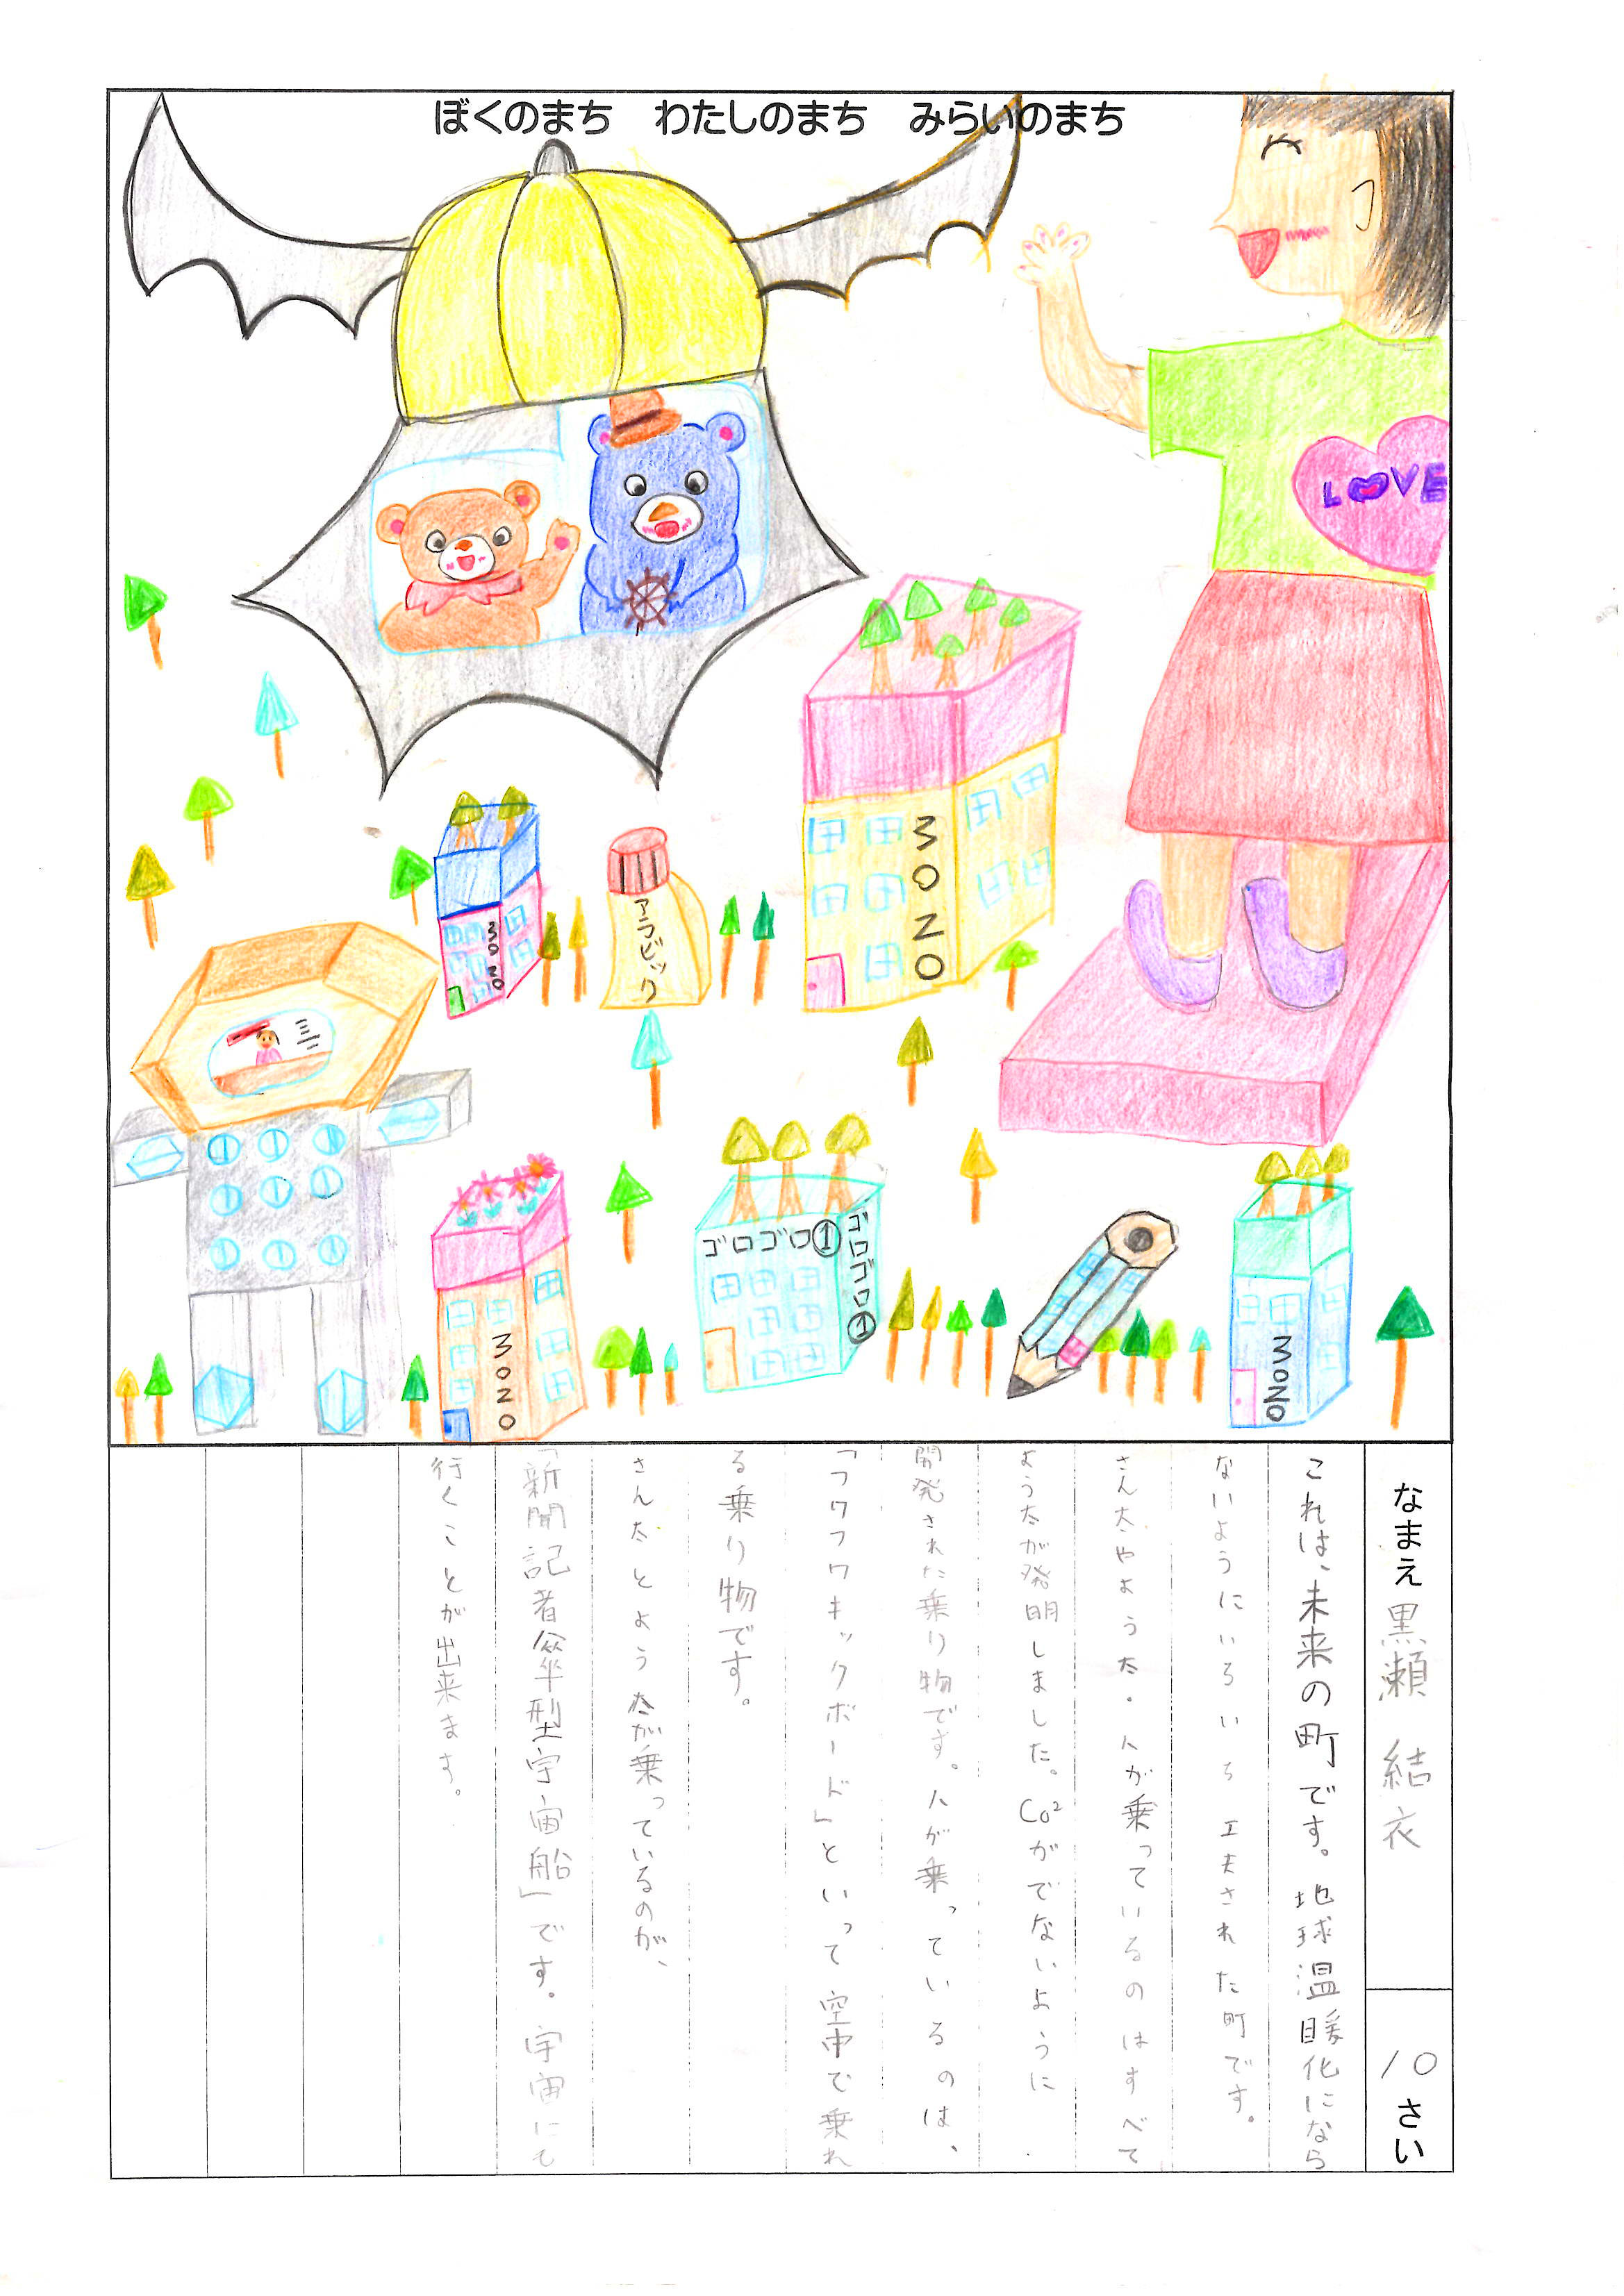 ぼくのまち　わたしのまち　みらいのまち
LOVE
MOZO
MOZO
アラビック
MOZO
ゴロゴロ①
ゴロゴロ①
MOZO
なまえ 黒瀬　結衣
10さい
これは、未来の町です。地球温暖化になら
ないようにいろいろ工夫された町です。
さん太やようた・人が乗っているのはすべて
ようたが発明しました。CO²がでないように
開発された乗り物です。人が乗っているのは、
「フワフワキックボード」といって空中で乗れ
る乗り物です。
さん太とようたが乗っているのが、
「新聞記者傘型宇宙船」です。宇宙にも
行くことが出来ます。